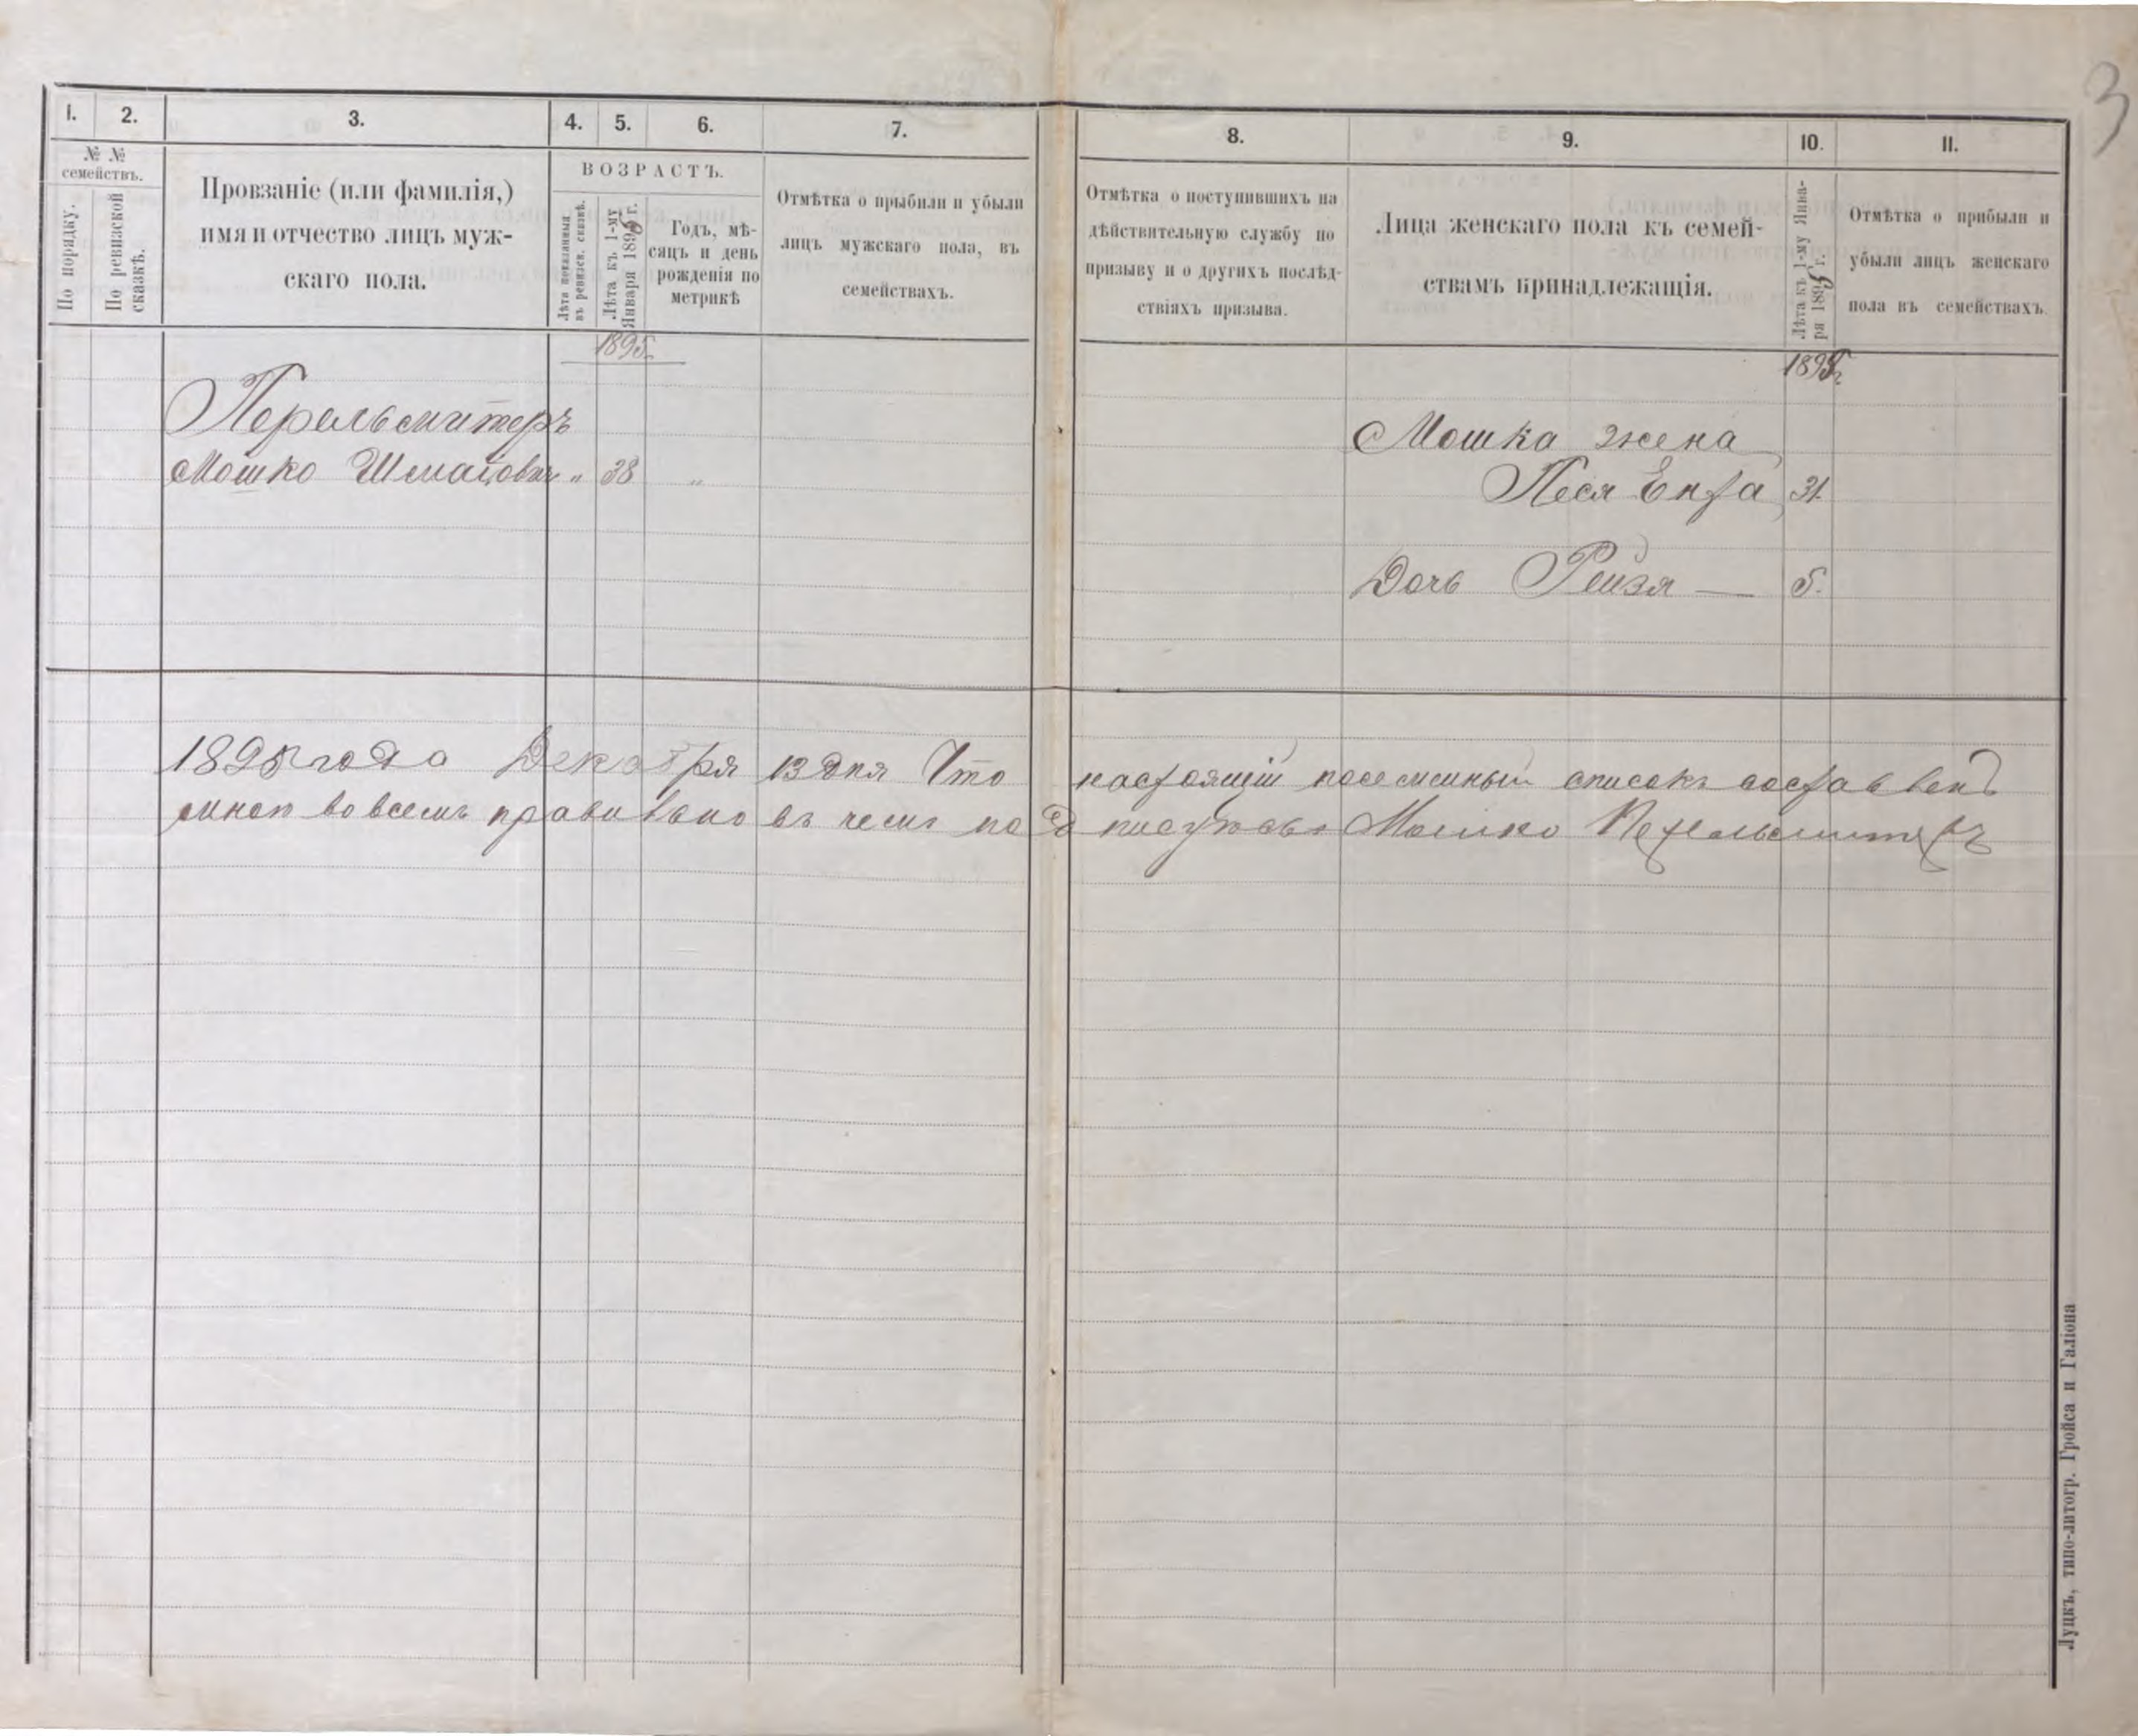 3
1. 2. 3. 4. 5. 6. 7. 8. 9. 10. 11.
№ № семействъ.
По порядку.
По ревизской сказкѣ.
Провзаніе (или фамилія,)
имя и отчество лицъ муж-
скаго пола.
ВОЗРАСТЪ.
Лѣта показанныя
въ ревизск. сказкѣ.
Лѣта къ 1-му
Января 1895 г.
Годъ, мѣ-
сяцъ и день
рожденія по
метрикѣ
Отмѣтка о прыбили и убыли
лицъ мужскаго пола, въ
семействахъ.
Отмѣтка о поступившихъ на
дѣйствительную службу по
призыву и о другихъ послѣд-
ствіяхъ призыва.
Лица женскаго пола къ семей-
ствамъ принадлежащія.
Лѣта къ 1-му Янва-
ря 1895 г.
Отмѣтка о прибыли и
убыли лицъ женскаго
пола въ семействахъ.
1895г.
1895г.
Перельмитеръ
Мошко „ 38 „
Мошка жена
Песя Ента 31.
Дочь Рейзя — 5.
1895 года Декабря 13 дня Что настоящій посемейный списокъ составленъ
мною во всемъ правильно въ чемъ подписуюсь Мошко
Луцкъ, типо-литогр. Гройса и Галіона